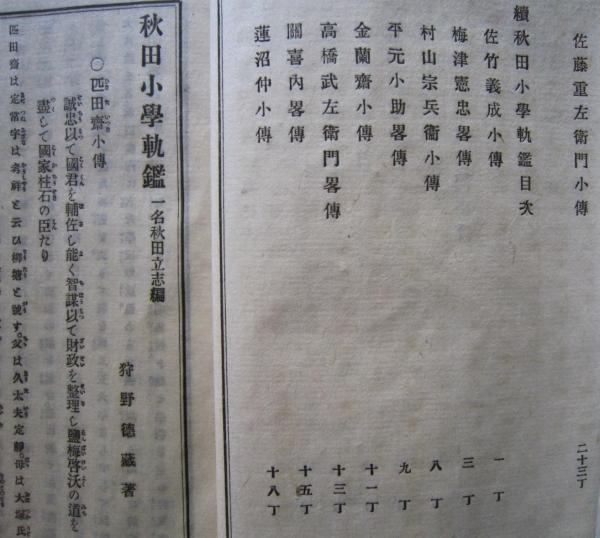 佐藤重左衞門小傳 二十三丁
續秋田小學軌鑑目次
佐竹義成小傳 一丁
梅津憲忠畧傳 三丁
村山宗兵衞小傳 八丁
平元小助畧傳 九丁
金蘭齋小傳 十一丁
高橋武左衞門畧傳 十三丁
關喜內畧傳 十五丁
蓮沼仲小傳 十八丁
秋田小學軌鑑 一名秋田立志編
狩野德藏著
○匹田齋小傳
誠忠以て國君を輔佐し能く智謀以て財政を整理し鹽梅啓沃の道を
盡して國家柱石の臣たり
匹田齋は定常字は 祥と云ひ柳塘と號す。父は久太夫定靜。母は大塚氏